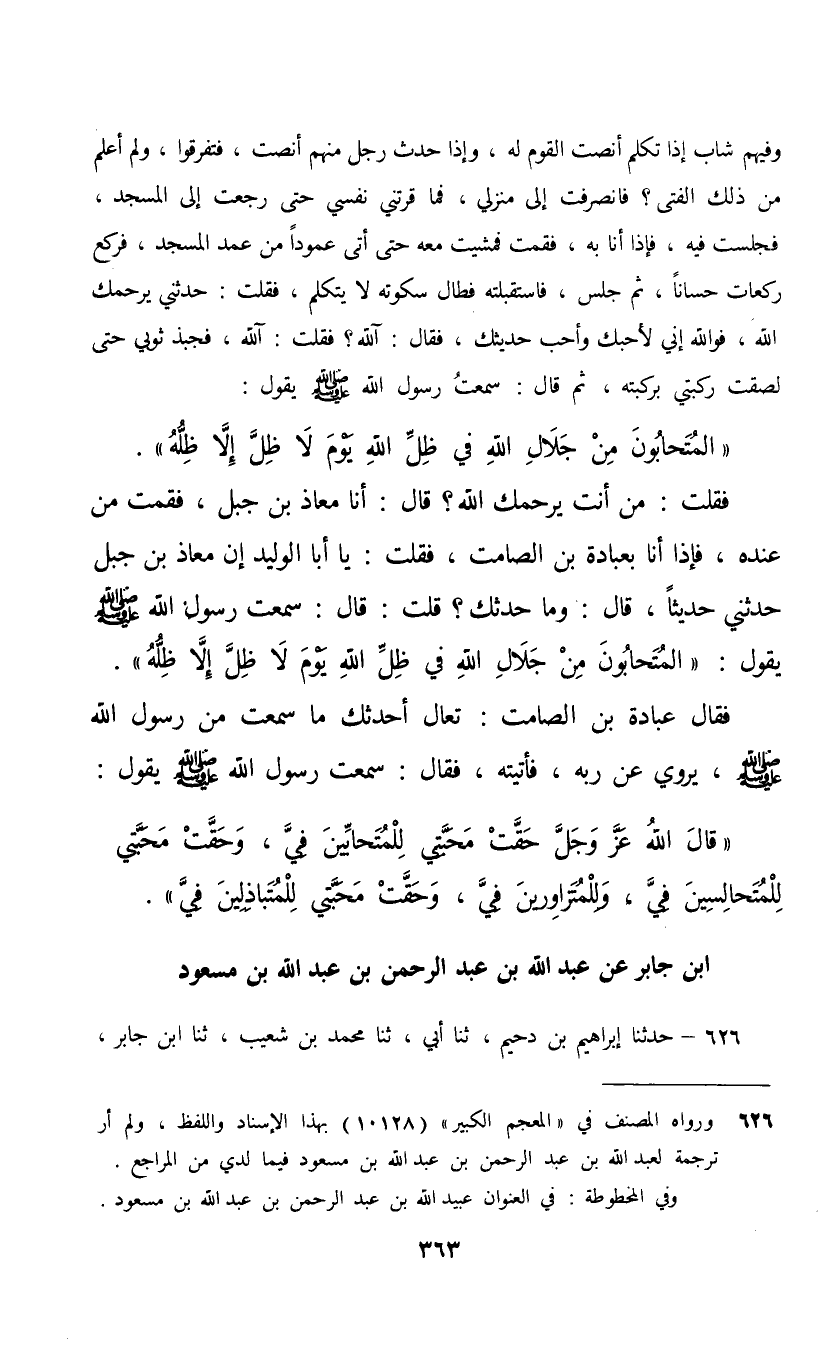 وفيهم شاب إذا تكلم أنصت القوم له ، وإذا حدث رجل منهم أنصت ، فتفرقوا ، ولم أعلم
من ذلك الفتى ؟ فانصرفت إلى منزلي ، فما قرتني نفسي حتى رجعت إلى المسجد ،
فجلست فيه ، فإذا أنا به ، فقمت فمشيت معه حتى أتى عموداً من عمد المسجد ، فركع
ركعات حساناً ، ثم جلس ، فاستقبلته فطال سكوته لا يتكلم ، فقلت : حدثني يرحمك
الله ، فوالله إني لأحبك وأحب حديثك ، فقال : آلله ؟ فقلت : آلله ، فجبذ ثوبي حتى
لصقت ركبتي بركبته ، ثم قال : سمعتُ رسول الله ﷺ يقول :
« المُتَحابُونَ مِنْ جَلَالِ اللهِ في ظِلِّ اللهِ يَوْمَ لَا ظِلَّ إِلَّا ظِلُّهُ » .
فقلت : من أنت يرحمك الله ؟ قال : أنا معاذ بن جبل ، فقمت من
عنده ، فإذا أنا بعبادة بن الصامت ، فقلت : يا أبا الوليد إن معاذ بن جبل
حدثني حديثاً ، قال : وما حدثك ؟ قلت : قال : سمعت رسول الله ﷺ
يقول : « المُتَحابُونَ مِنْ جَلَالِ اللهِ في ظِلِّ اللهِ يَوْمَ لَا ظِلَّ إِلَّا ظِلُّهُ » .
فقال عبادة بن الصامت : تعال أحدثك ما سمعت من رسول الله
ﷺ ، يروي عن ربه ، فأتيته ، فقال : سمعت رسول الله ﷺ يقول :
« قالَ اللهُ عَزَّ وَجَلَّ حَقَّتْ مَحَبَّتِي لِلْمُتَحابِّينَ فِيَّ ، وَحَقَّتْ مَحَبَّتِي
لِلْمُتَجالِسِينَ فِيَّ ، وَلِلْمُتَزاوِرِينَ فِيَّ ، وَحَقَّتْ مَحَبَّتِي لِلْمُتَباذِلِينَ فِيَّ » .
ابن جابر عن عبد الله بن عبد الرحمن بن عبد الله بن مسعود
٦٢٦ – حدثنا إبراهيم بن دحيم ، ثنا أبي ، ثنا محمد بن شعيب ، ثنا ابن جابر ،
٦٢٦ ورواه المصنف في « المعجم الكبير » (١٠١٢٨) بهذا الإسناد واللفظ ، ولم أر
ترجمة لعبد الله بن عبد الرحمن بن عبد الله بن مسعود فيما لدي من المراجع .
وفي المخطوطة : في العنوان عبيد الله بن عبد الرحمن بن عبد الله بن مسعود .
٣٦٣